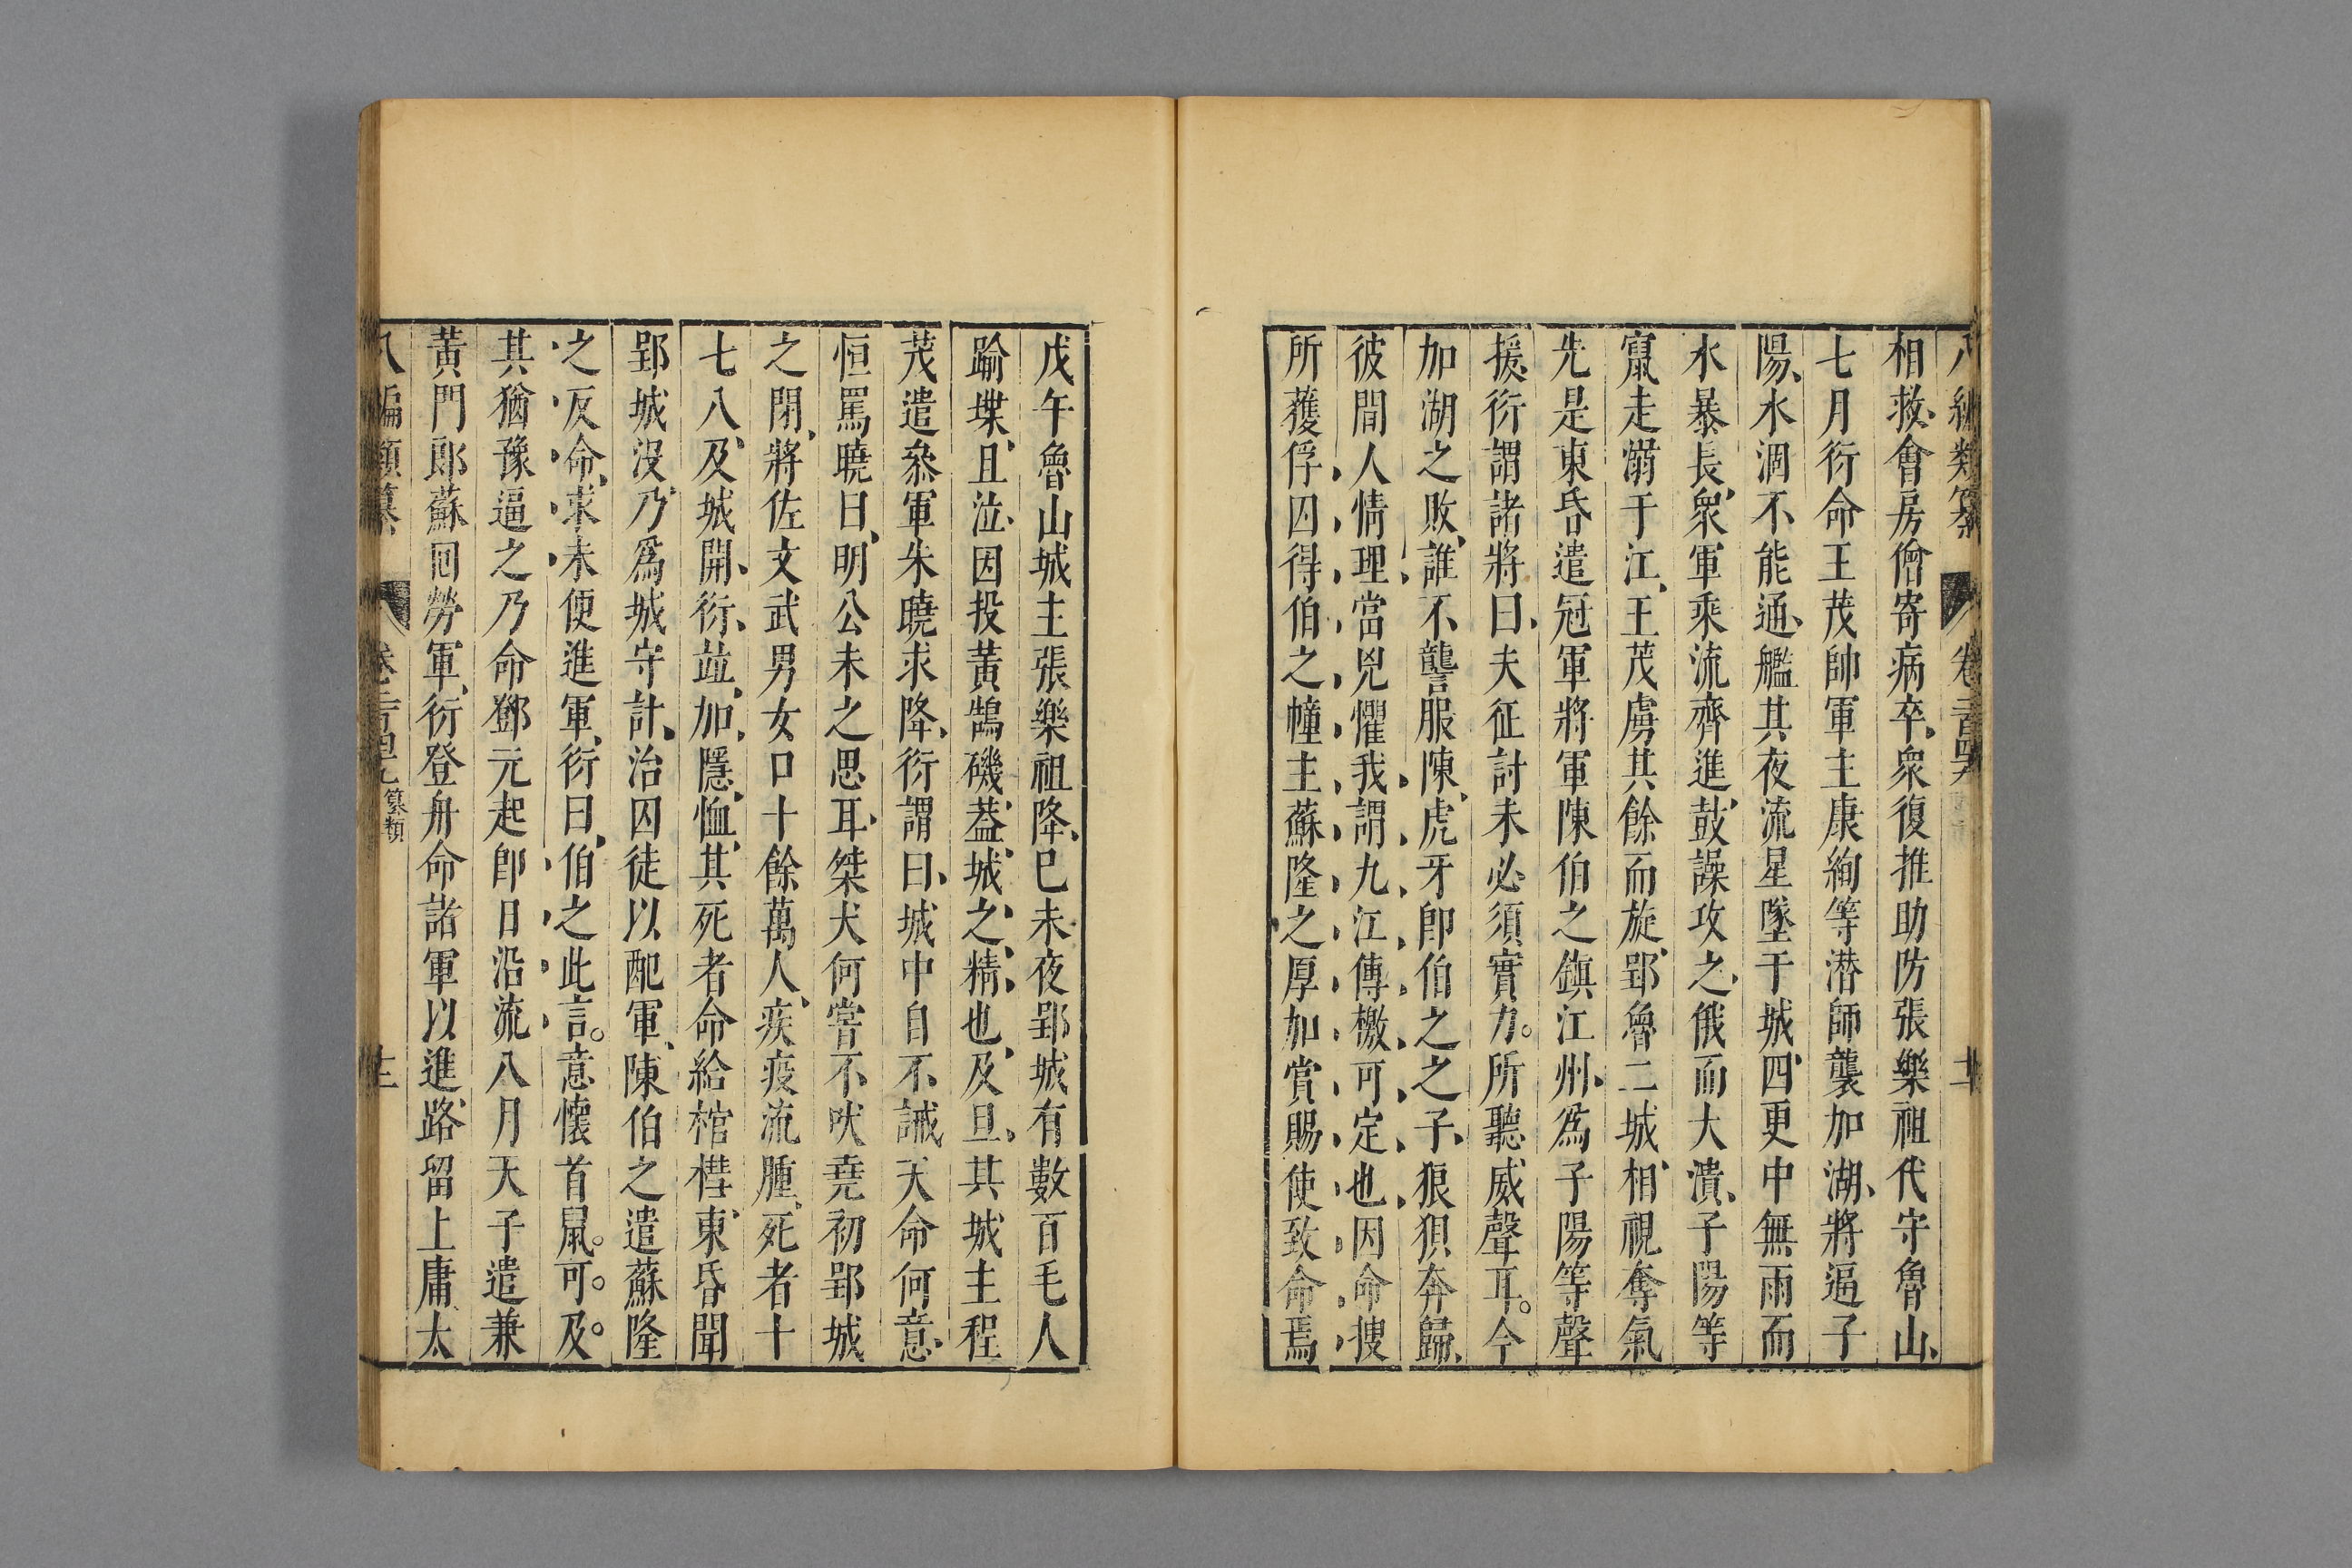 八編類纂 卷
相救、會房僧寄病卒、衆復推助防張樂祖代守魯山、
七月衍命王茂帥軍主康絢等潜師襲加湖、將逼子
陽、水涸不能通艦、其夜流星墜于城、四更中無雨而
水暴長、衆軍乘流齊進、鼓譟攻之、俄而大潰、子陽等
竄走溺于江、王茂虜其餘而旋、郢魯二城相視奪氣
先是東昏遣冠軍將軍陳伯之鎮江州、爲子陽等聲
援、衍謂諸將曰、夫征討未必須實力。所聽威聲耳。今
加湖之敗、誰不讋服、陳虎牙卽伯之之子、狼狽奔歸、
彼間人情理當兇懼、我謂九江傳檄可定也、因命搜
所獲俘囚得伯之幢主蘇隆之厚加賞賜使致命焉
戊午魯山城主張樂祖降、巳未夜郢城有數百毛人
踰堞、且泣、因投黃鵠磯、蓋城之精也、及旦、其城主程
茂遣叅軍朱曉求降、衍謂曰、城中自不誡天命何意、
恒罵曉曰、明公未之思耳、桀犬何嘗不吠堯初郢城
之閉、將佐文武男女口十餘萬人、疾疫流腫、死者十
七八、及城開、衍竝加隱恤、其死者命給棺槥、東昏聞
郢城沒、乃爲城守計、治囚徒以配軍、陳伯之遣蘇隆
之反命、求未便進軍、衍曰、伯之此言。意懷首鼠。可。及。
其猶豫逼之乃命鄧元起卽日沿流、八月天子遣兼
黃門郎蘇囘勞軍、衍登舟命諸軍以進路、留上庸太
八編類纂 卷 纂類